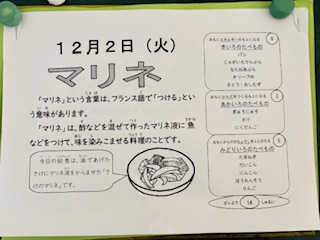 12月2日（火）
マリネ
「マリネ」という言葉は、フランス語で「つける」とい
う意味があります。
「マリネ」は、酢などを混ぜて作ったマリネ液に魚
などをつけて、味を染みこませる料理のことです。
今日の給食は、油であげた
さけにマリネ液をからませた「さ
けのマリネ」です。
おもにエネルギーのもとになる
きいろのたべもの
6
パン
じゃがいもでんぷん
なたねあぶら
オリーブゆ
さとう・おしむぎ
おもにからだをつくるもとになる
あかいろのたべもの
3
ぎゅうにゅう
さけ
にくだんご
おもにからだのちょうしをととのえる
みどりいろのたべもの
5
たまねぎ
だいこん
にんじん
ほうれんそう
りんご
ぜんぶで 14 しゅるい